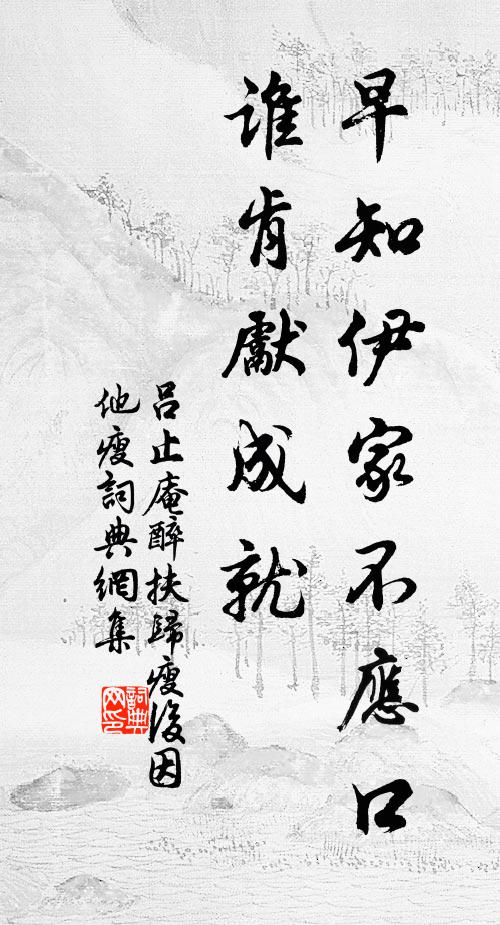 早知伊家不應口
誰肯獻成就
呂止庵醉扶歸瘦後因
他瘦詞典網集
詞典
网印